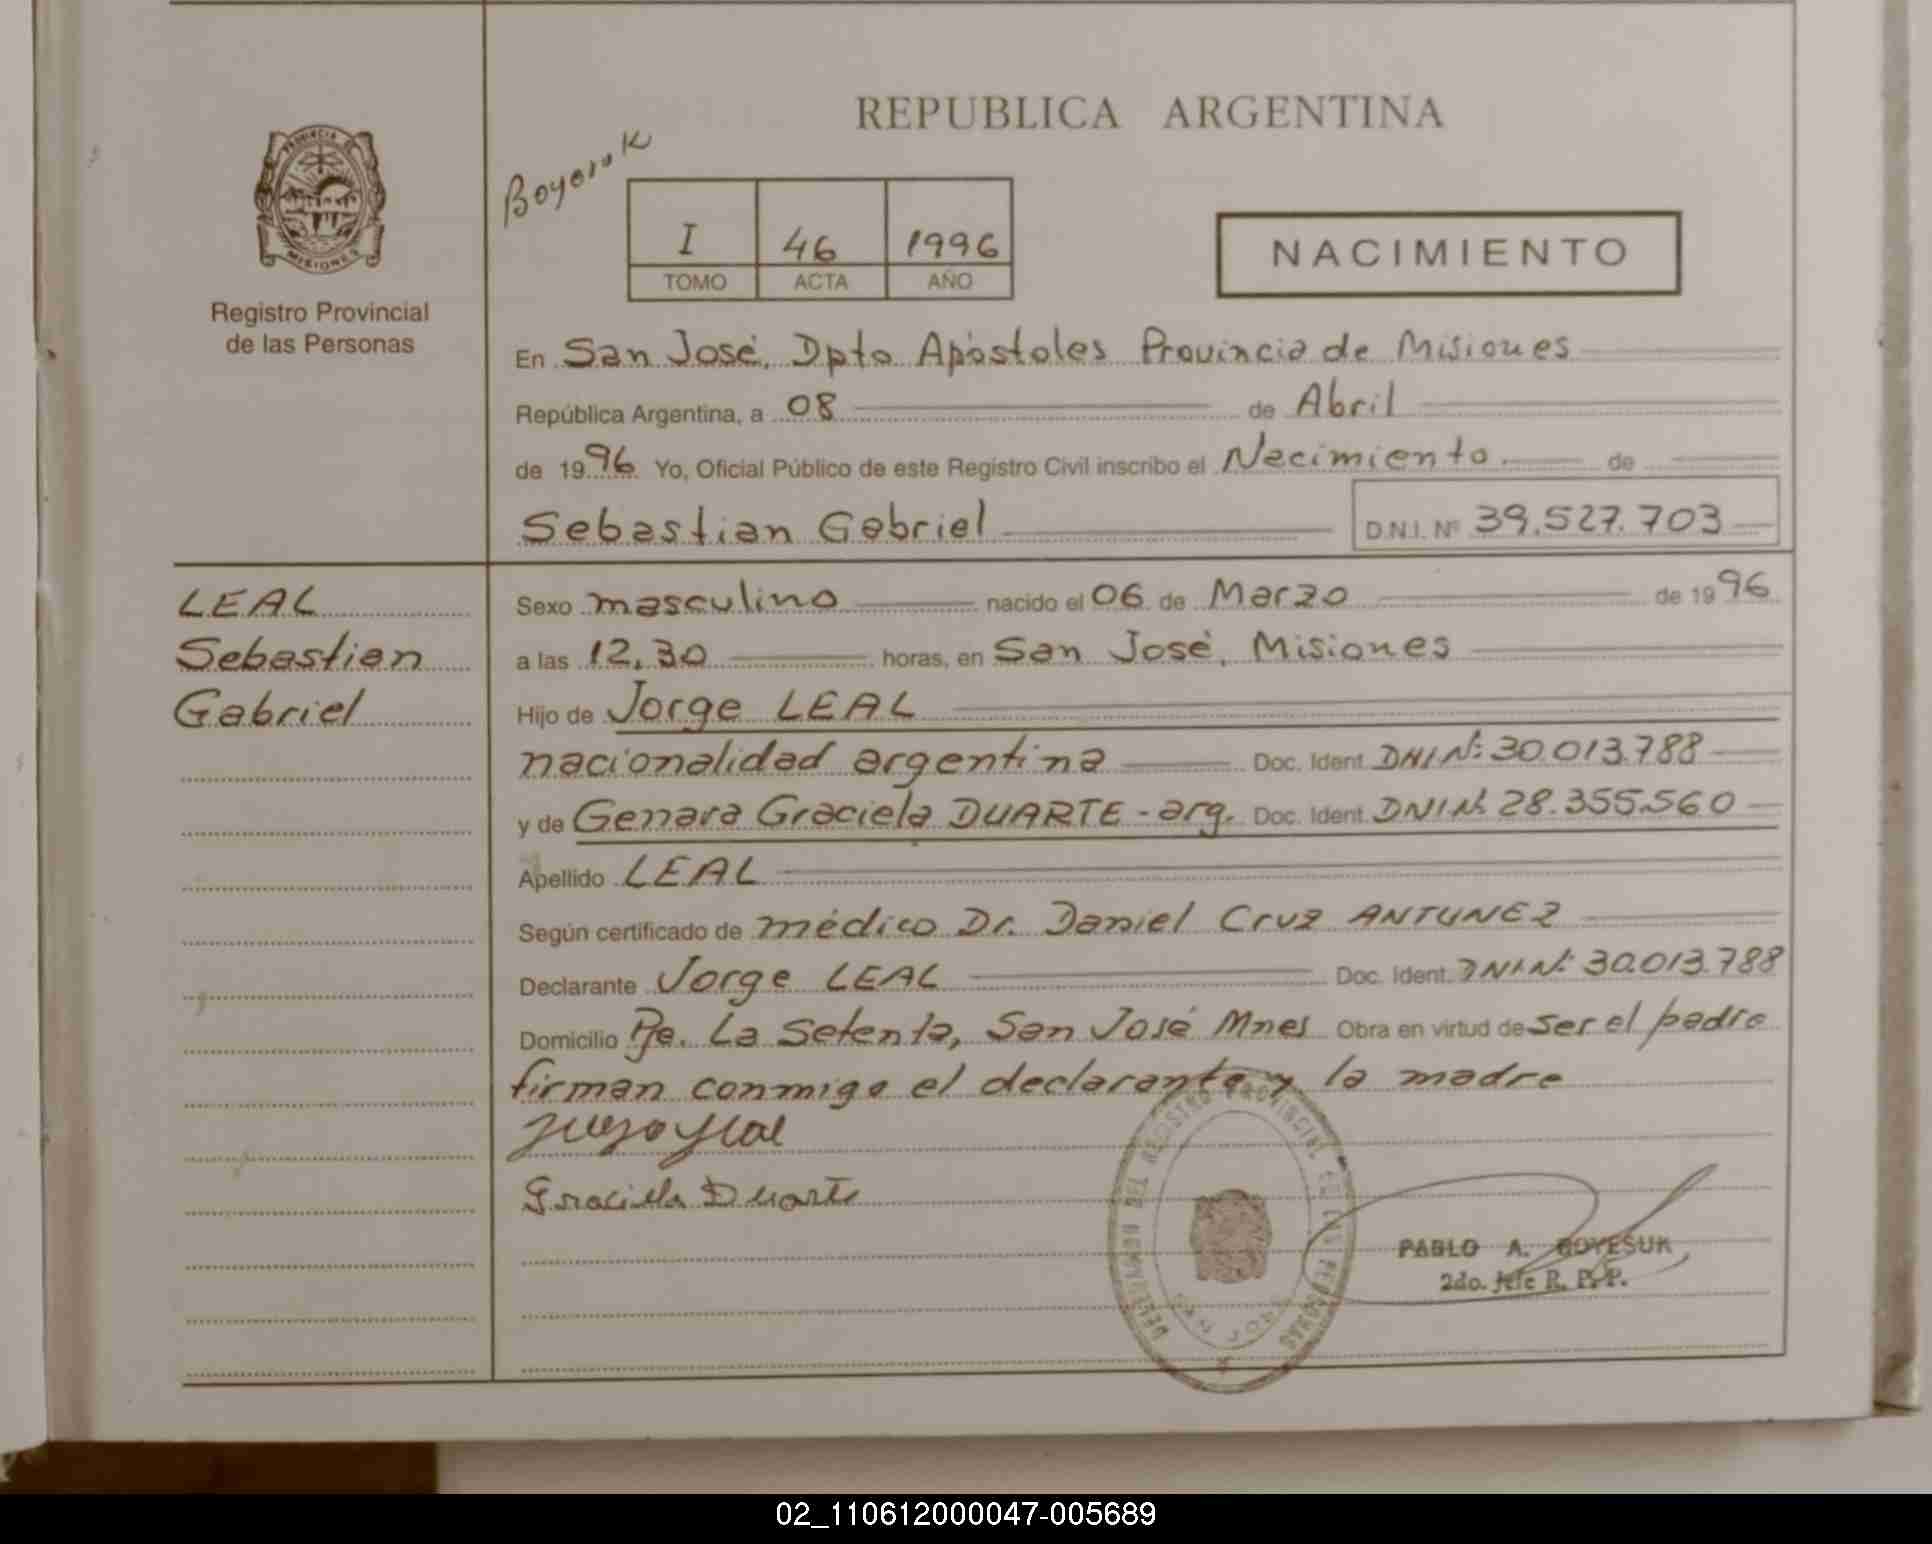 REPUBLICA ARGENTINA
PROVINCIA DE
MISIONES
Registro Provincial
de las Personas
I 46 1996
TOMO ACTA AÑO
NACIMIENTO
En San José, Dpto Apóstoles Provincia de Misiones
República Argentina, a 08 de Abril
de 1996 Yo, Oficial Público de este Registro Civil inscribo el Nacimiento de
Sebastian Gabriel D.N.I. Nº 39.527.703
LEAL
Sebastian
Gabriel
Sexo masculino nacido el 06 de Marzo de 1996
a las 12,30 horas, en San José, Misiones
Hijo de Jorge LEAL
nacionalidad argentina Doc. Ident. DNI Nº: 30.013.788
y de Genara Graciela DUARTE - arg. Doc. Ident. DNI Nº. 28.355.560
Apellido LEAL
Según certificado de médico Dr. Daniel Cruz ANTUNEZ
Declarante Jorge LEAL Doc. Ident. DNI Nº: 30.013.788
Domicilio Pje. La Setenta, San José Mnes Obra en virtud de ser el padre
firman conmigo el declarante y la madre
Graciela Duarte
DELEGACION DEL REGISTRO PROVINCIAL DE LAS PERSONAS
SAN JOSE
PABLO A. BOYESUK
2do. Jefe R. P. P.
02_110612000047-005689